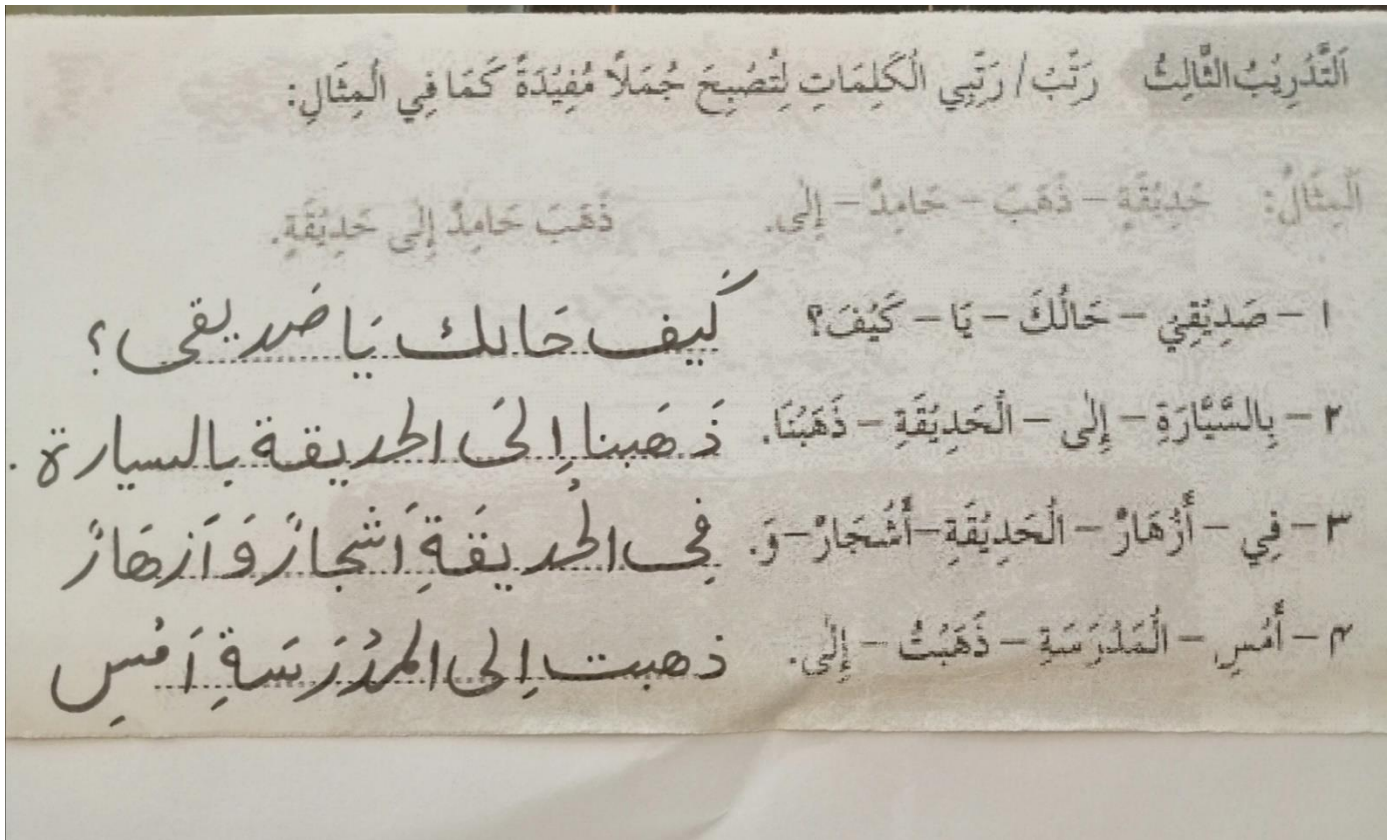 اَلتَّدْرِيْبُ الثَّالِثُ رَتِّبْ/ رَتِّبِي الْكَلِمَاتِ لِتُصْبِحَ جُمَلاً مُفِيْدَةً كَمَا فِي الْمِثَالِ:
اَلْمِثَالُ: حَدِيْقَةٍ – ذَهَبَ – حَامِدٌ – إِلٰى. ذَهَبَ حَامِدٌ إِلٰى حَدِيْقَةٍ.
١ – صَدِيْقِيْ – حَالُكَ – يَا – كَيْفَ؟ كَيف حَالك يَا صَديقى ؟
٢ – بِالسَّيَّارَةِ – إِلٰى – الْحَدِيْقَةِ – ذَهَبْنَا. ذَ هَبنا اِلىَ الحديقة بالسيارة .
٣ – فِي – أَزْهَارٌ – الْحَدِيْقَةِ – أَشْجَارٌ – وَ. فِى الْحديقَةِ اَشجارٌ وَ اَزهَارٌ
٤ – أَمْسِ – الْمَدْرَسَةِ – ذَهَبْتُ – إِلٰى. ذهبت اِلى المدْرَسَةِ اَمْسِ